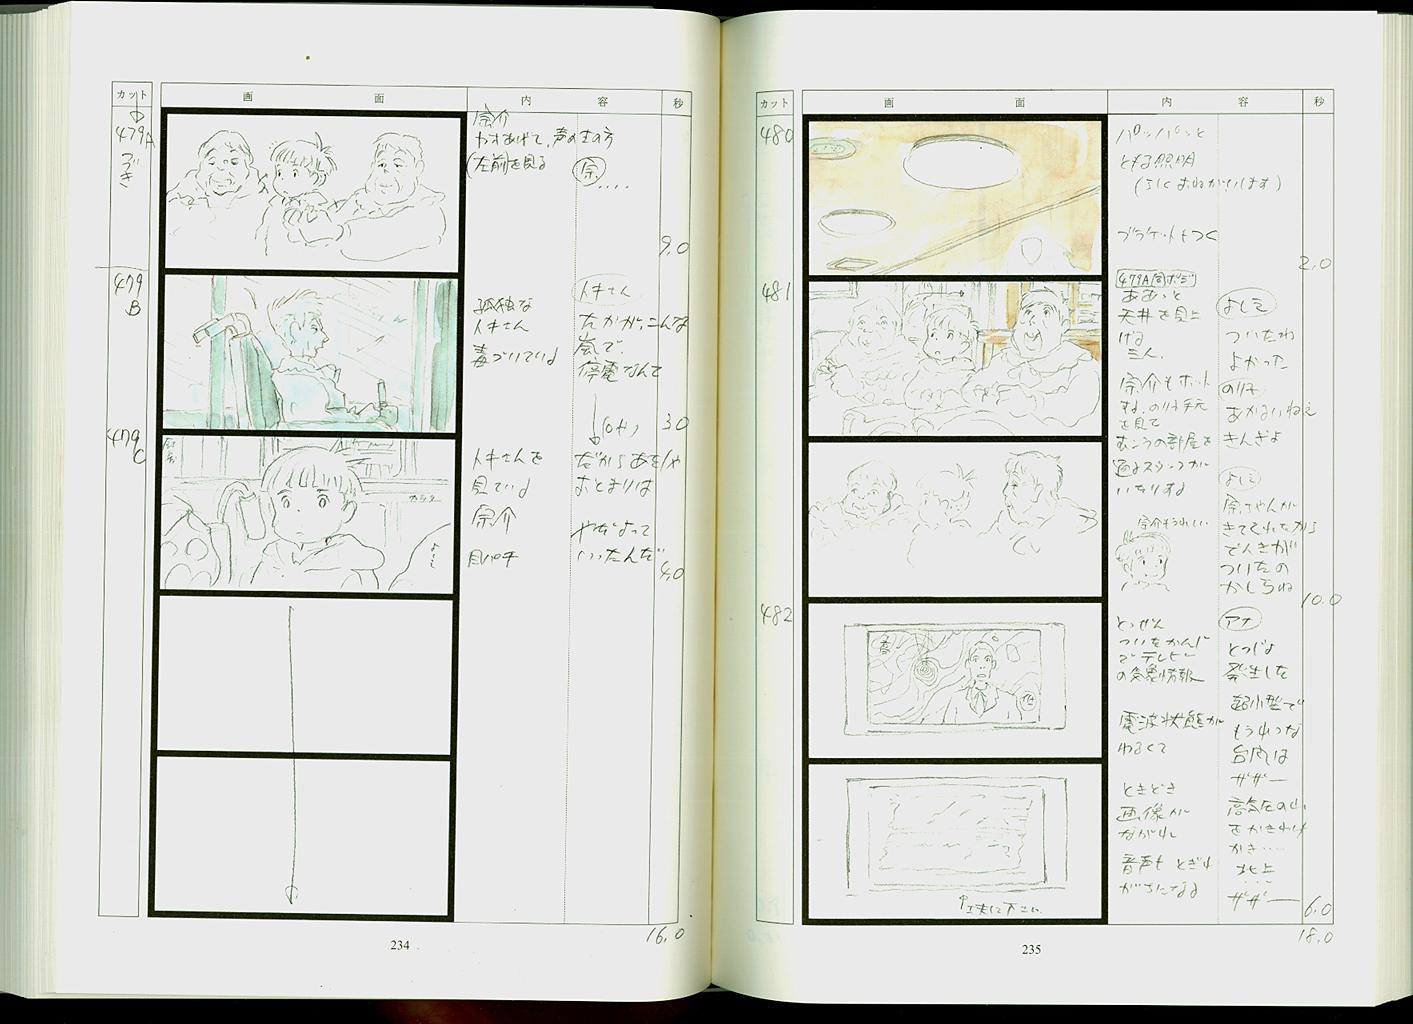 カット
画
面
内
容
秒
479A
つづき
宗介
かおあげて、声の主の方
(左前)を見る
宗
‥‥
9.0
479
B
孤独な
トキさん
毒づいている
トキさん
たかが、こんな
嵐で、
停電なんて
3.0
479
C
トキさんを
見ている
宗介
目パチ
だから
おとまりは
やだよって
いったんだ
よしえ
4.0
16.0
234
カット
画
面
内
容
秒
480
パッパッと
ともる照明
ブラケットもつく
2.0
481
479A
ああっと
天井を見上
げる
三人、
宗介もホット
する、のり子手元
を見て
むこうの部屋を
よしえ
ついたわ
よかった
のり子
あかるいねえ
きんぎょ
よしえ
宗ちゃんが
きてくれたから
でんきが
ついたの
かしらね
宗介もうれしい
10.0
482
とつぜん
ついたかんじ
でテレビ
の気象情報
電波状態が
わるくて
ときどき
画像が
ながれ
音声も とぎれ
がちになる
アナ
とつじょ
発生した
超小型で
もうれつな
台風は
ザザー
高気圧の
をかきわけ
かき‥‥
北上
‥‥
ザザー
6.0
18.0
235